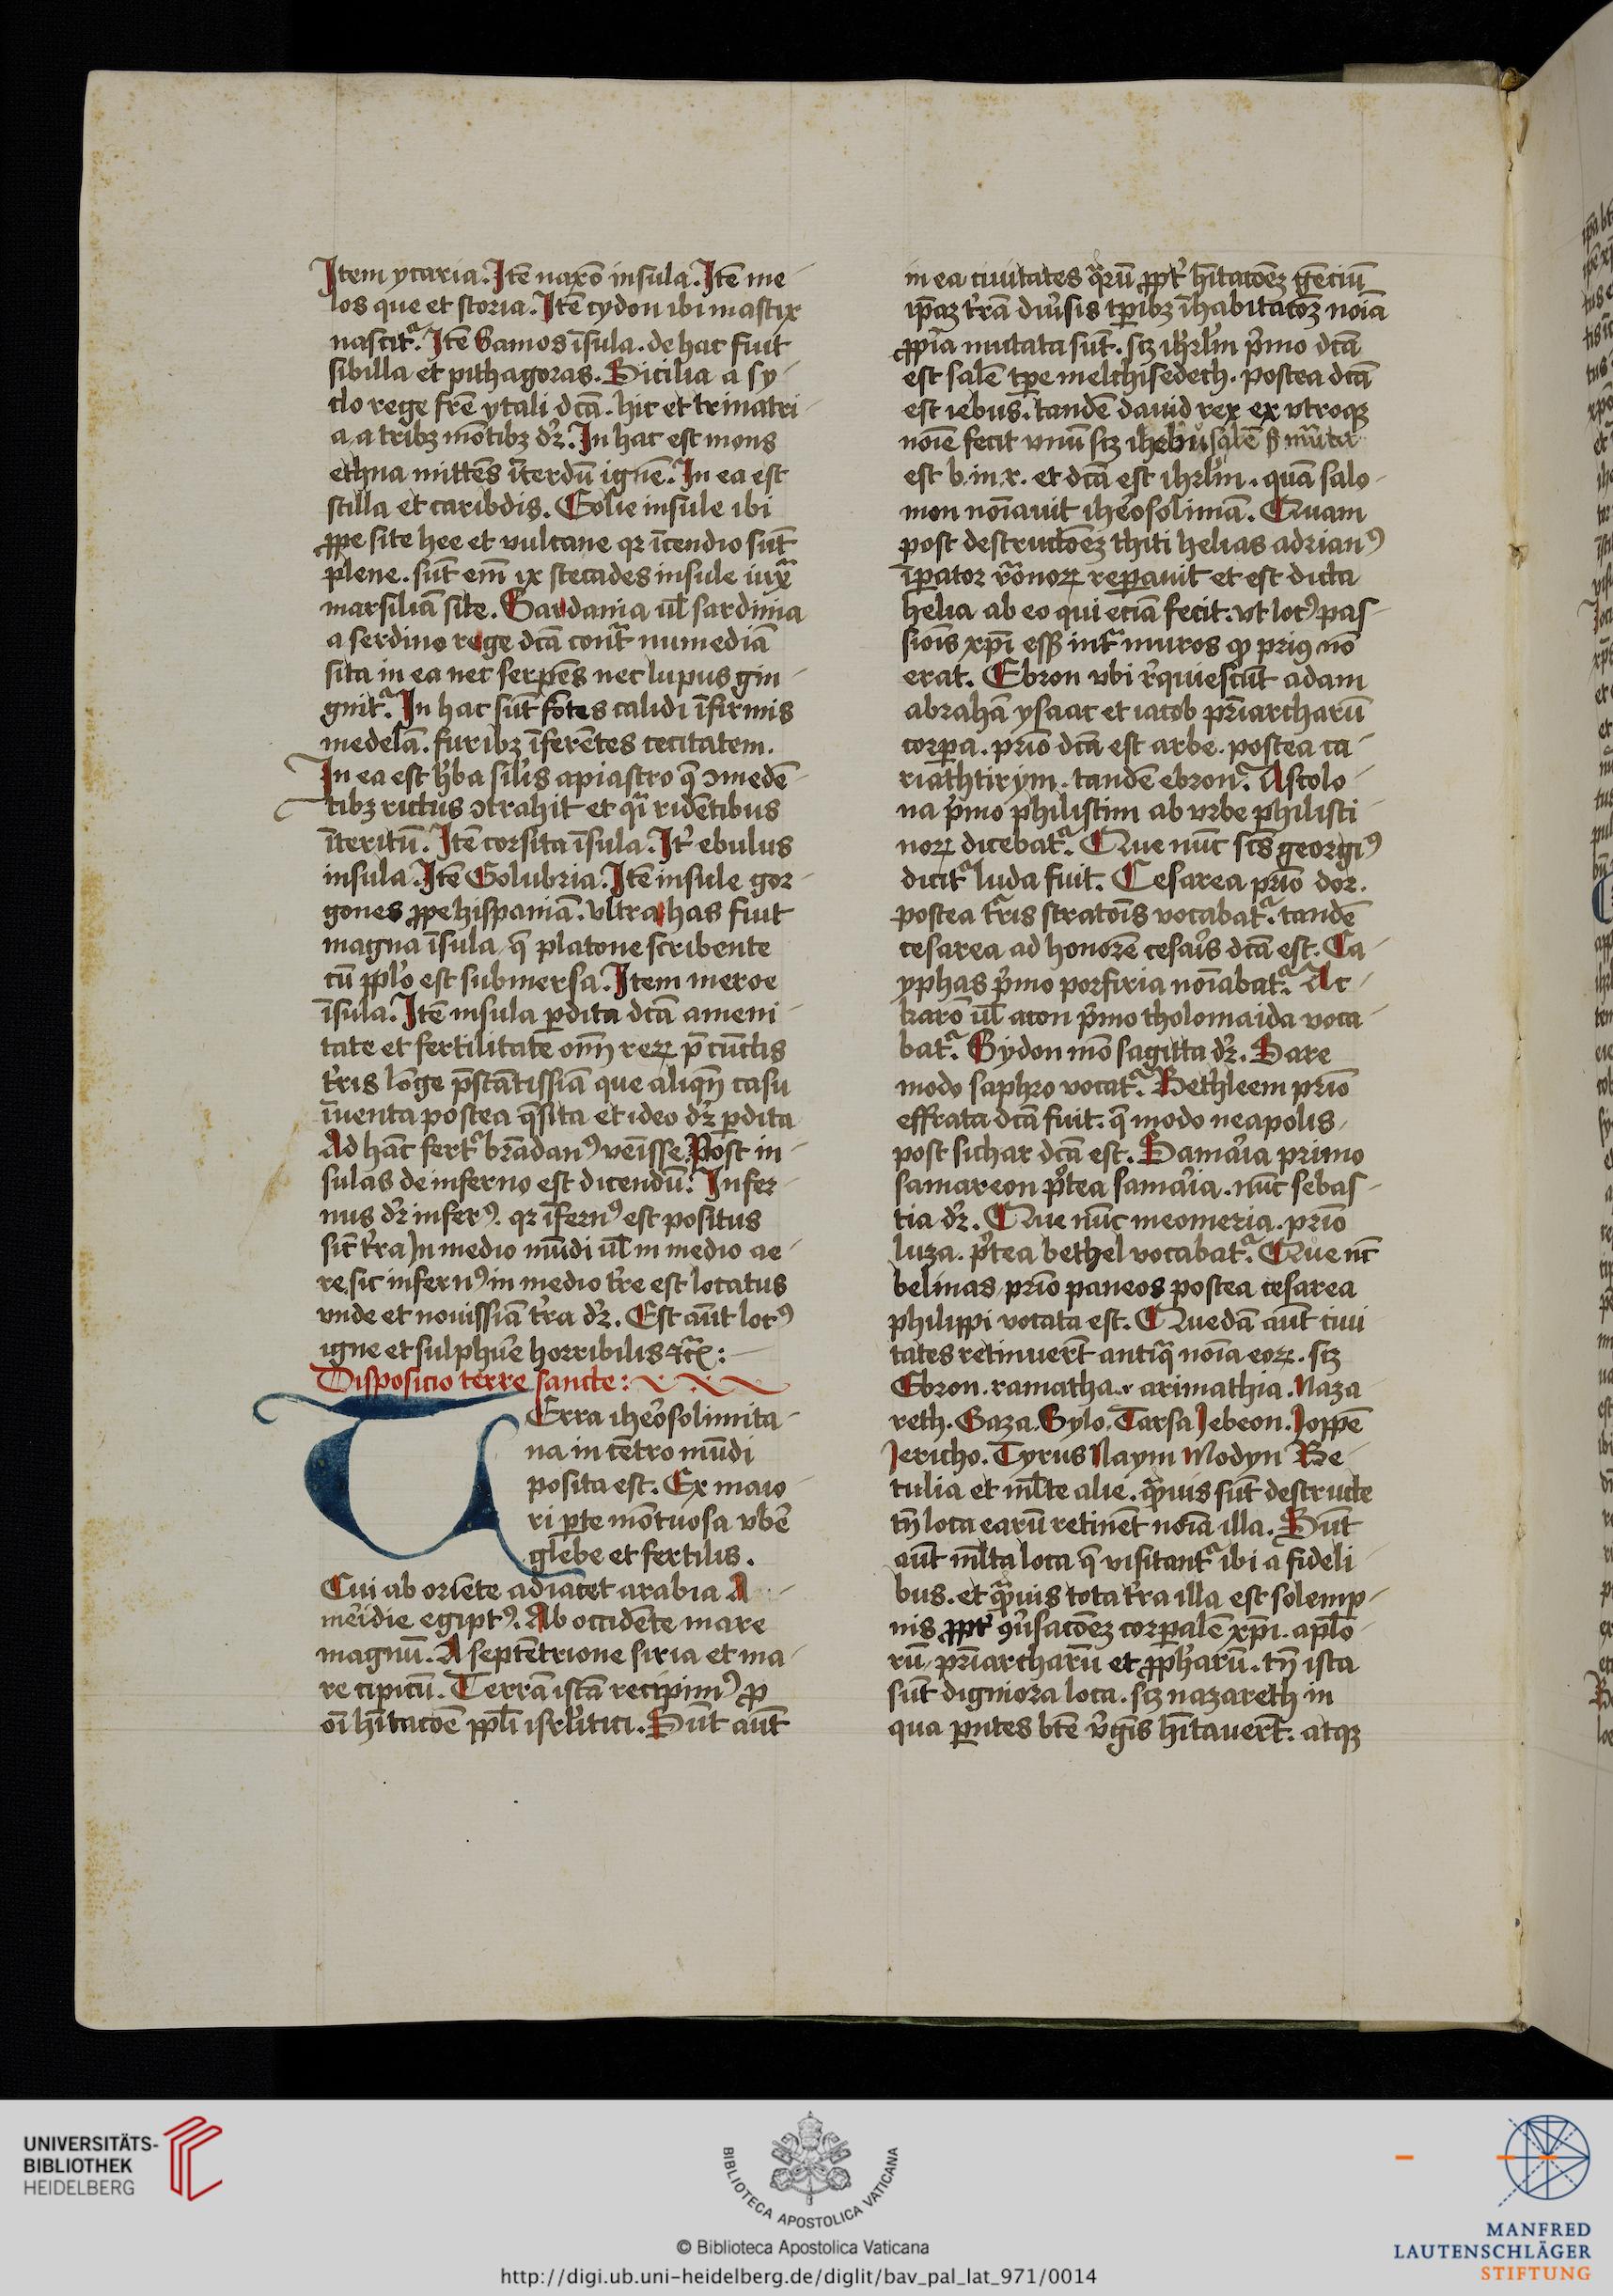 Item ycaria. Itē naxō insula. Itē me-
los que et storia. Itē cydon ibi mastix
nascitᷓ. Itē Samos īsula. de hac fuit
sibilla et pithagoras. Sicilia a sy-
clo rege frē ytali dcā. hic et trinacri-
a. a tribꝫ mōtibꝫ dꝛ̄. In hac est mons
ethna mittēs īterdū ignē. In ea est
scilla et caribdis. Eolie insule ibi
ꝓpe site hee et vulcane qꝛ īcendio sūt
plene. sūt em̄ ix stecades insule iuxᷓ
marsiliā site. Sardania ul̄ sardinia
a serdino rege dcā contᷓ numediā
sita in ea nec serpēs nec lupus gin-
gnitᷓ. In hac sūt fōtes calidi īfirmis
medelā. furibꝫ īferētes cecitatem.
In ea est h̓ba sil̓is apiastro q̄ ↄmedē-
tibꝫ rictus ↄtrahit et qͥ ridētibus
īteritū. Itē corsica īsula. It̓ ebulus
insula. Itē Colubria. Itē insule gor-
gones ꝓpe hispaniā. vltra has fuit
magna īsula q̄ platone scribente
cū ppl̓o est submersa. Item meroe
īsula. Itē insula ꝑdita dcā ameni-
tate et fertilitate om̄ reꝝ p̄ cūctis
tr̓is lōge p̄stātissiā que aliqn̄ casu
īuenta postea q̄sita et ideo dꝛ̄ ꝑdita
Ad hāc fertᷓ brādanꝰ veīsse. Post in-
sulas de inferno est dicendū. Infer-
nus dꝛ̄ inferꝰ. qꝛ īfernꝰ est positus
sic̄ tr̓a In medio mūdi ul̄ in medio ae-
re. sic infernꝰ in medio tr̓e est locatus
vnde et nouissiā tr̓a dꝛ̄. Est aūt locꝰ
igne et sulphur̓e horribilis ⁊cᷓ:
Disposicio terre sancte:
Terra iher̓osolimita-
na in cētro mūdi
posita est. Ex maio-
ri ꝑte mōtuosa vber̄
glebe et fertilis.
Cui ab oriēte adiacet arabia A
mer̓idie egiptꝰ. Ab occidēte mare
magnū. A septētrione siria et ma-
re cipicū. Terrā istā recipimꝰ ꝓ
oī hītacoē ppl̄i isrl̓itici. Sūt aūt
in ea ciuitates q̄rū ꝓpt̓ hītacōeꝫ gēciū
ip̄aꝫ tr̓ā diu̓sis tꝑibꝫ īhabitācoꝫ noīa
ꝓpia mutata sūt. scꝫ ihrl̓m p̓mo dcā
est salē tꝑe melchisedech. postea dcā
est iebus. tandē dauid rex ex vtroqꝫ
noīe fecit vnū scꝫ ihebusalē
est b. in. r. et dcā est ihrl̓m. quā salo-
mon noīauit iher̓osolimā. Quam
post destructōeꝫ thiti helias adrianꝰ
īꝑator rōmoꝝ reꝑauit et est dicta
helia ab eo qui eciā fecit. vt locꝰ pas-
siōis xp̄i esset int̓ muros qͦ priꝰ nō
erat. Ebron vbi r̓quiescūt adam
abrahā ysaac et iacob pr̄iarcharū
corꝑa. prīo dcā est arbe. postea ca-
riathtirym. tandē ebronᷓ. Ascolo-
na p̓mo philistim ab vrbe philisti-
noꝝ dicebatᷓ. Que nūc scs̄ georgiꝰ
dicitᷓ luda fuit. Cesarea prīo dor.
postea tᷓris stratōis vocabatᷓ. tandē
cesarea ad honorē cesar̓is dcā est. Ca-
yphas p̓mo porfiria noīabatᷓ. Ac-
karō ul̄ acon p̓mo tholomaida voca-
batᷓ. Sydon mō sagitta dꝛ̄. Sare
modo saphro vocatᷓ. Bethleem prīo
effrata dcā fuit. q̄ modo neapolis,
post sichar dcā est. Samar̓ia primo
samareon pͦtea samar̓ia. nūc sebas-
tia dꝛ̄. Que nūc meomeria. prīo
luza. pͦtea bethel vocabatᷓ. Que nc̄
belinas prīo paneos postea cesarea
philippi vocata est. Quedā aūt ciui-
tates retinuer̄t antiqᷓ noīa eoꝝ. scꝫ
Ebron. ramatha. arimathia. Naza-
reth. Gaza. Sylo. Tarsa Iebeon. Ioppē
Iericho. Tyrus Naym Modyn Be-
tulia et ml̄te alie. qᷓuis sūt destructe
tn̄ loca earū retinēt noīa illa. Sūt
aūt ml̄ta loca q̄ visitantᷓ ibi a fideli-
bus. et qᷓuis tota tr̓a illa est solemp-
nis ꝓpt̓ ꝯu̓sacōeꝫ corꝑalē xp̄i. apl̄o-
rū, pr̄iarcharū et ꝓph̄arū. tn̄ ista
sūt digniora loca. scꝫ nazareth in
qua ꝑntes btē v̓gīs hītauer̄t. atqꝫ
UNIVERSITÄTS-
BIBLIOTHEK
HEIDELBERG
BIBLIOTECA APOSTOLICA VATICANA
© Biblioteca Apostolica Vaticana
http://digi.ub.uni-heidelberg.de/diglit/bav_pal_lat_971/0014
MANFRED
LAUTENSCHLÄGER
STIFTUNG